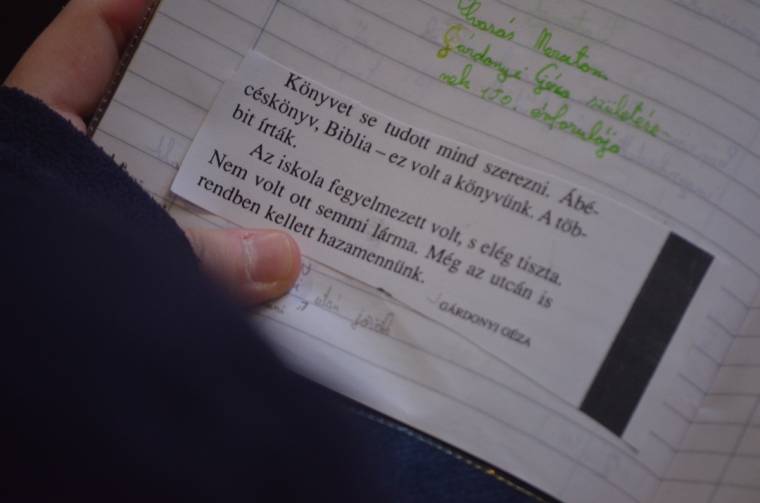 Olvasás Maraton
Gárdonyi Géza születésé-
nek 150. évfordulója
Könyvet se tudott mind szerezni. Ábé-
céskönyv, Biblia – ez volt a könyvünk. A töb-
bit írták.
Az iskola fegyelmezett volt, s elég tiszta.
Nem volt ott semmi lárma. Még az utcán is
rendben kellett hazamennünk.
GÁRDONYI GÉZA